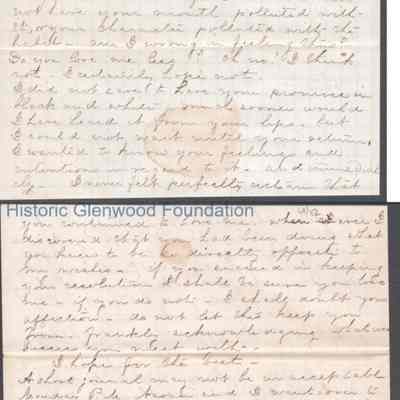 not have your mouth polluted with
it, or your character polluted with the
habit. Am I wrong in feeling thus?
Do you love me less? Oh no! I think
not. I certainly hope not.
I did not want to have your promises in
black and white much sooner would
I have heard it from your lips. But
I could not wait until your return,
I wanted to know your feelings and
intentions in regard to it. and immediate
ly. I never felt perfectly certain that
Historic Glenwood Foundation
you continued to love me. when ever I
discovered that you had been doing what
you knew to be directly opposite to
my wishes. If you succeed in keeping
your resolution I shall be sure you love
me. if you do not. I shall doubt your
affection. do not let this keep you
from frankly acknowledging what
success you meet with.
I hope for the best.
A short journal may not be unacceptable
and I went over to